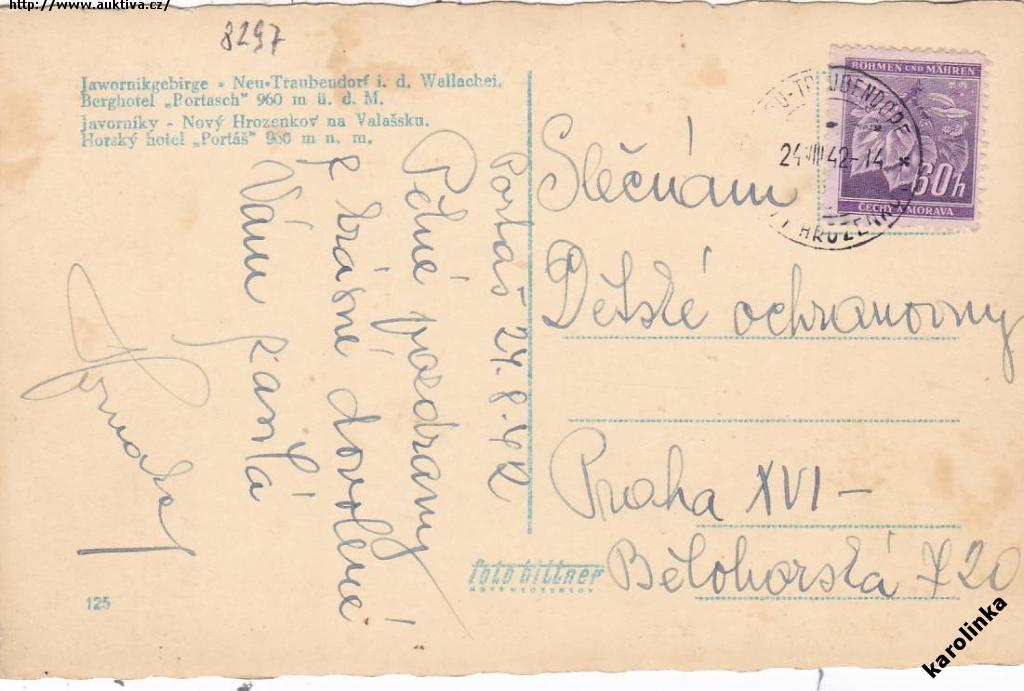 http://www.auktiva.cz/
8297
Jawornikgebirge - Neu-Traubendorf i. d. Wallachei.
Berghotel „Portasch" 960 m ü. d. M.
Javorníky - Nový Hrozenkov na Valašsku.
Horský hotel „Portáš" 960 m n. m.
Portáš 24.8.42
Pěkné pozdravy
z krásné dovolené
Vám zasílá
BÖHMEN UND MÄHREN
60 h
ČECHY A MORAVA
U-TRAUBENDORF
24.VIII.42-14
HROZENK
Slečnám
Dětské ochranovny
Praha XVI -
Bělohorská 720
foto bittner
125
karolinka